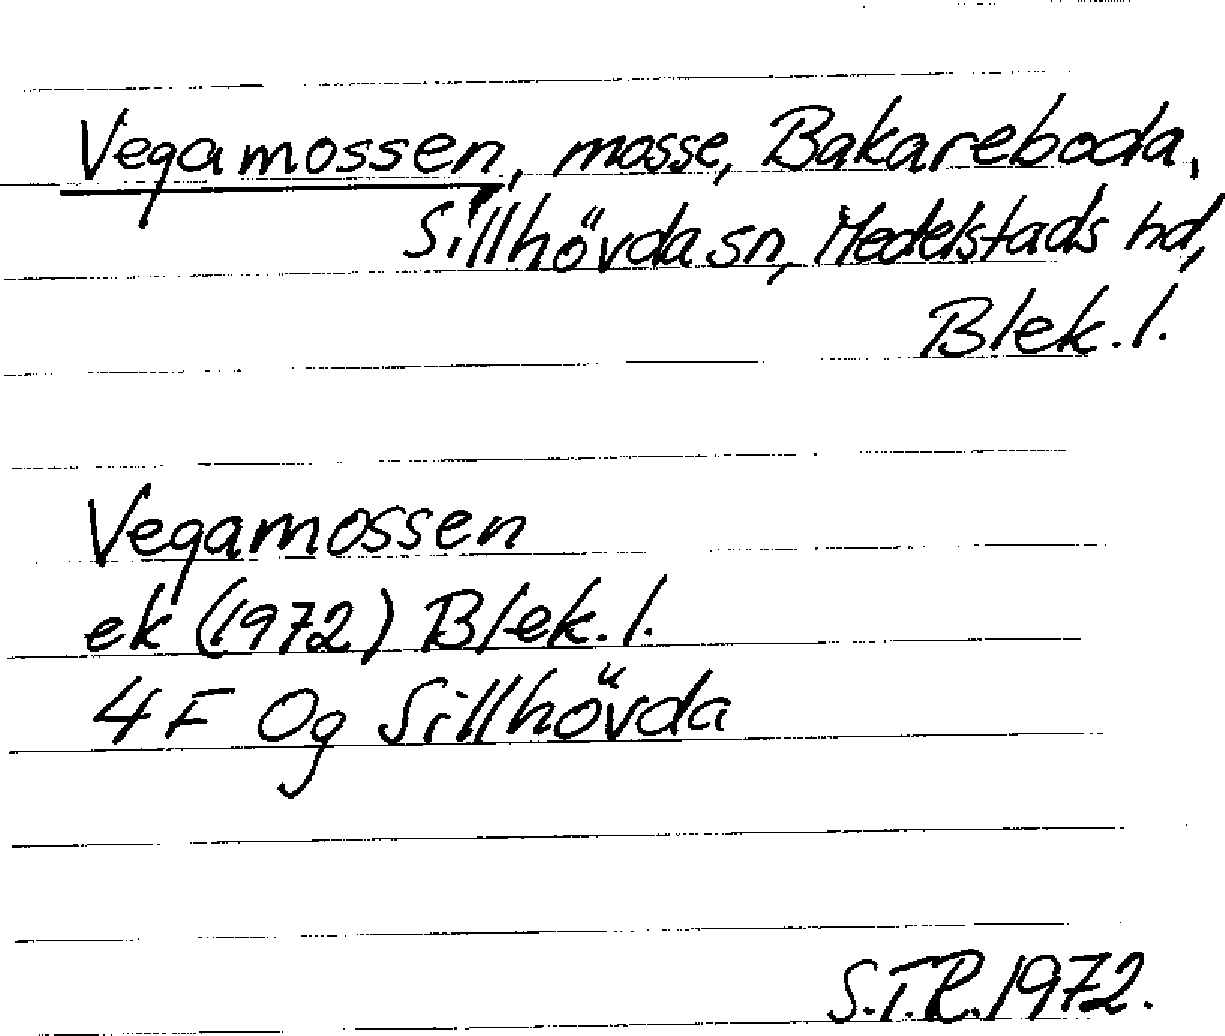 Vegamossen, mosse, Bakareboda,
Sillhövda sn, Medelstads hd,
Blek. l.
Vegamossen
ek (1972) Blek. l.
4 F Og Sillhövda
S.T.R. 1972.